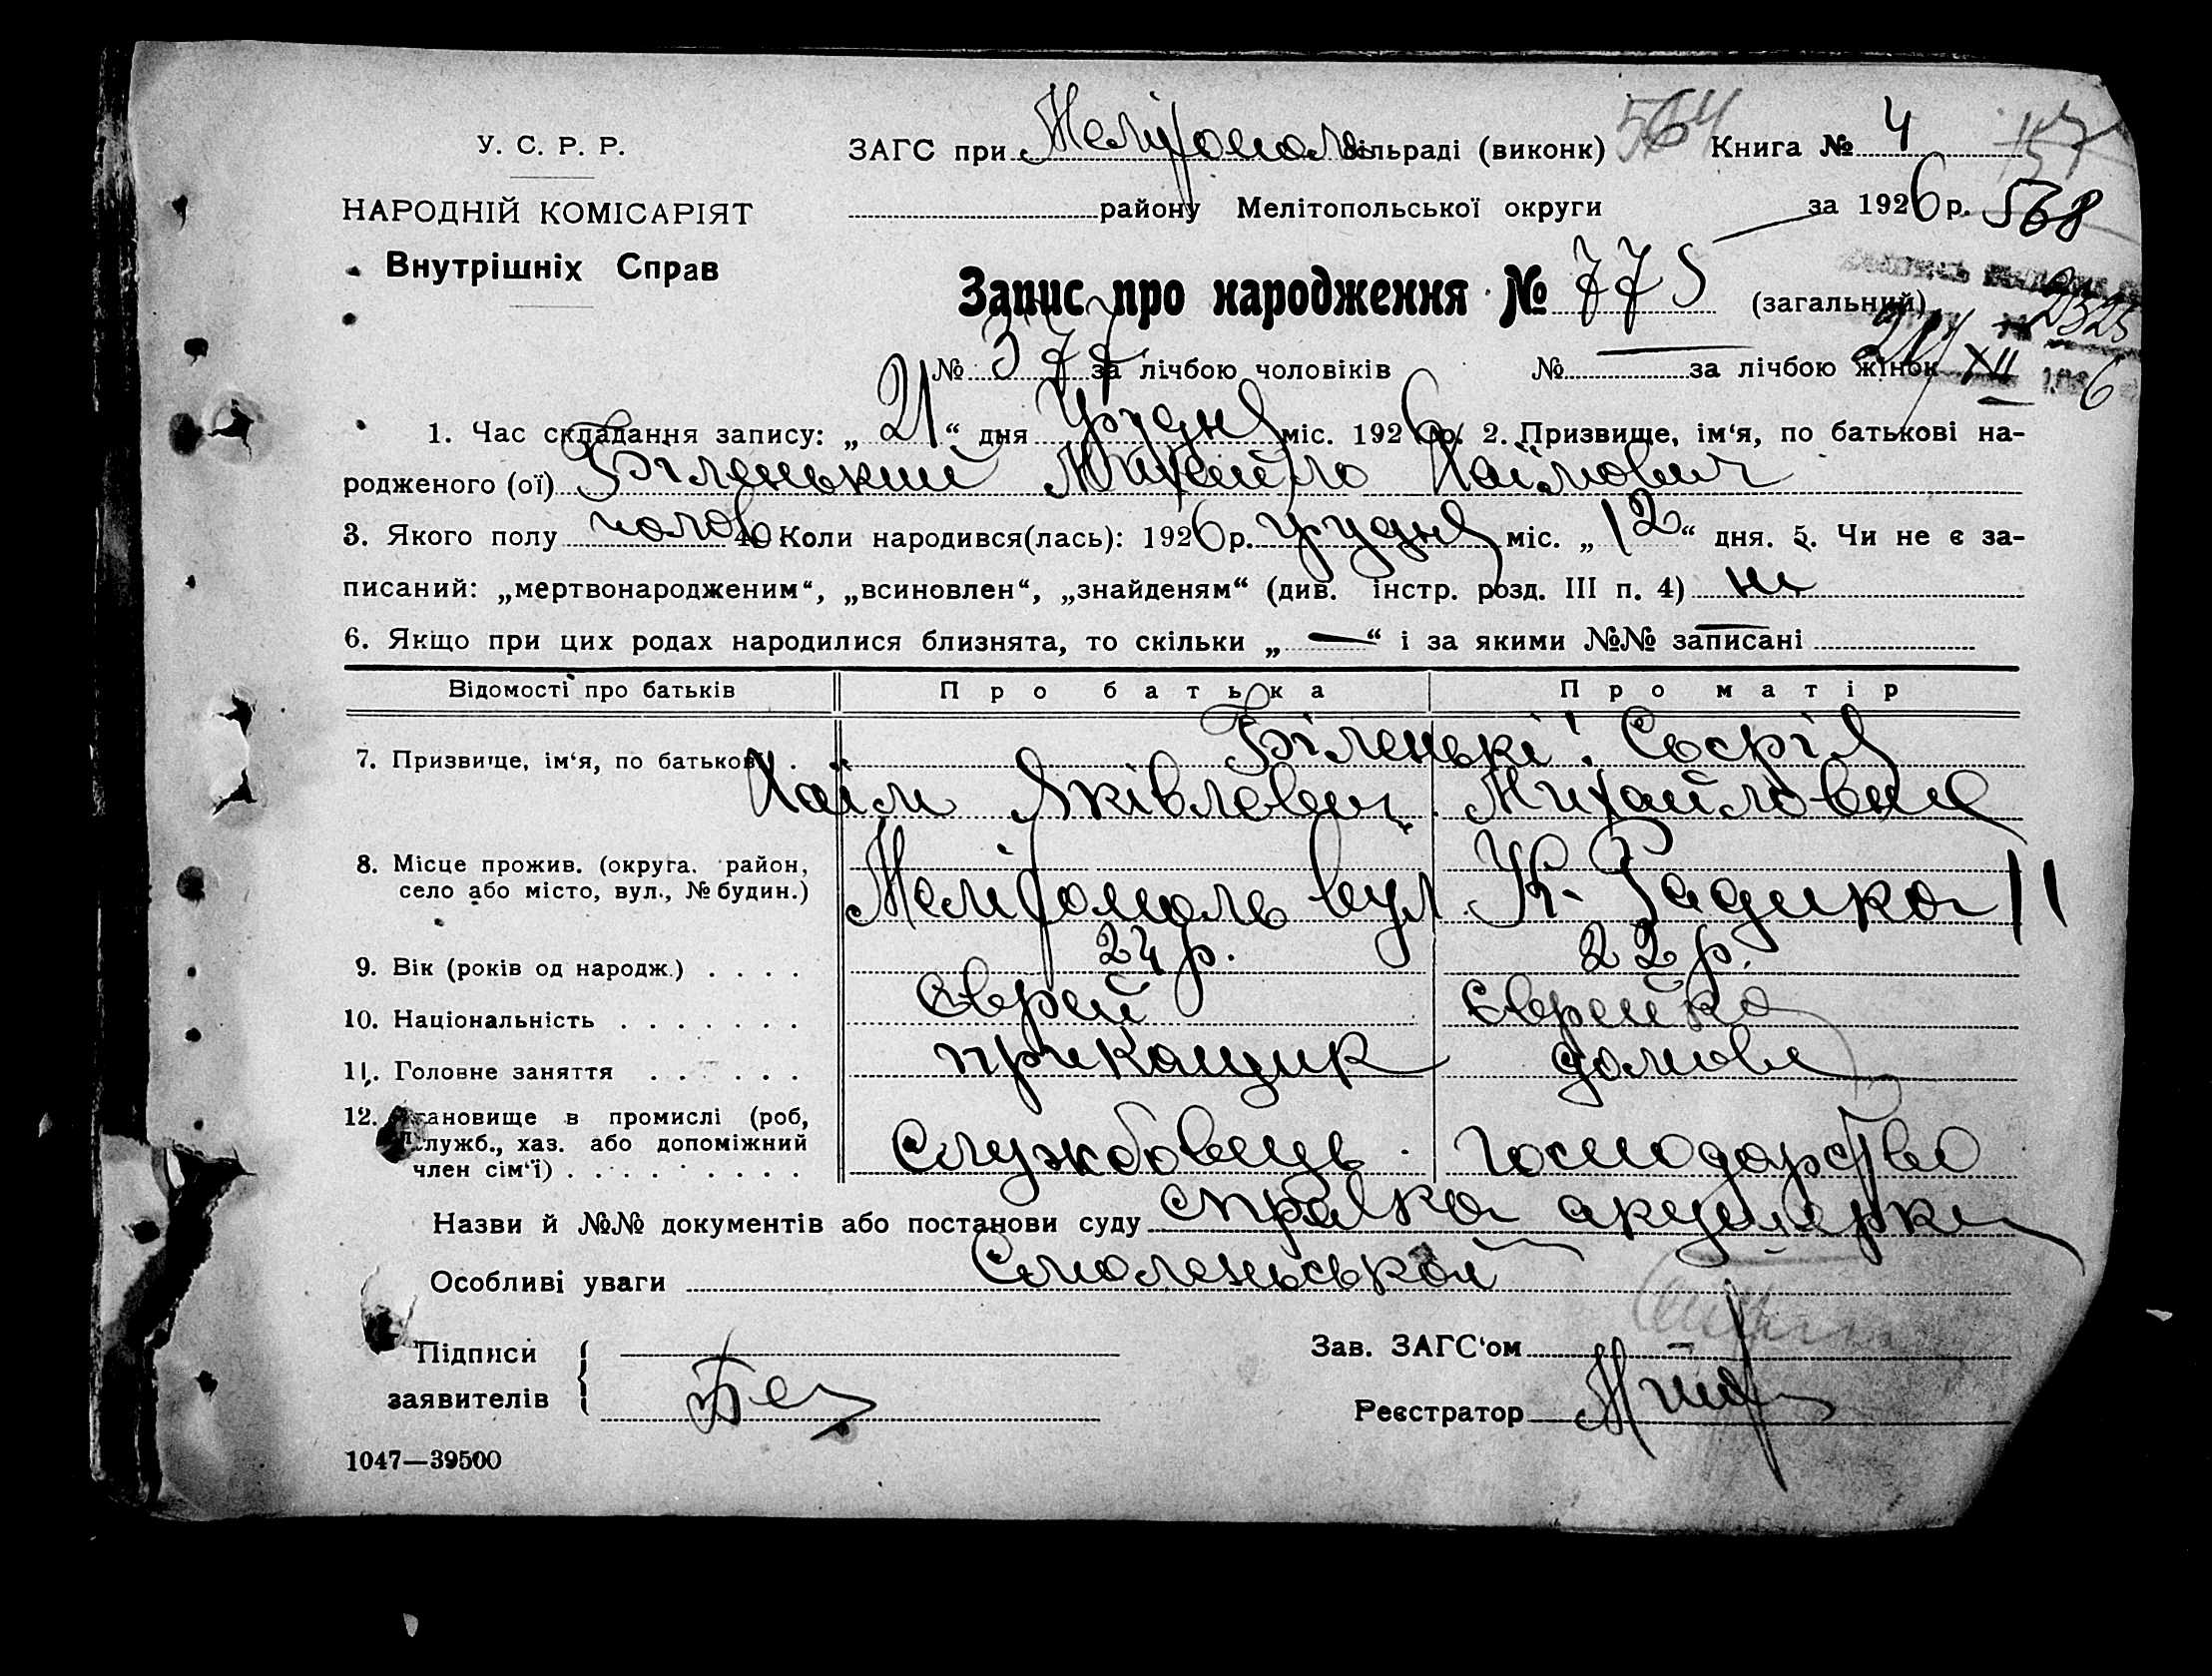 У. С. Р. Р.
НАРОДНІЙ КОМІСАРІЯТ
Внутрішніх Справ
ЗАГС при Мелітополь сільраді (виконк) 564 Книга № 4 157
району Мелітопольської округи за 1926 р. 568
Запис про народження № 775 (загальний)
2325
№ 377 за лічбою чоловіків № — за лічбою жінок
XII 6
1. Час складання запису: „ 21 “ дня Грудня міс. 1926 р. 2. Призвище, ім‘я, по батькові на-
родженого (ої) Біленький Михайло Хаїмович
3. Якого полу чолов 4. Коли народився(лась): 1926 р. грудня міс. „ 12 “ дня. 5. Чи не є за-
писаний: „мертвонародженим“, „всиновлен“, „знайденям“ (див. інстр. розд. III п. 4) ні
6. Якщо при цих родах народилися близнята, то скільки „ — “ і за якими №№ записані —
Відомості про батьків Про батька Про матір
7. Призвище, ім‘я, по батькові . . Біленькі! Софія
Хаїм Яківлевич Михайловна
8. Місце прожив. (округа. район,
село або місто, вул., № будин.) Мелітополь вул. К. Радека 11
9. Вік (років од народж.) . . . . 24 р. 22 р.
10. Національність . . . . . . . Єврей єврейка
11. Головне заняття . . . . . . приказщик домове
12. Становище в промислі (роб,
служб., хаз. або допоміжний
член сім‘ї) . . . . . . . . . Службовець господарство
Назви й №№ документів або постанови суду справка акушерки
Особливі уваги Смоленської
Підписи
заявителів Без
Зав. ЗАГС‘ом
Реєстратор
1047—39500